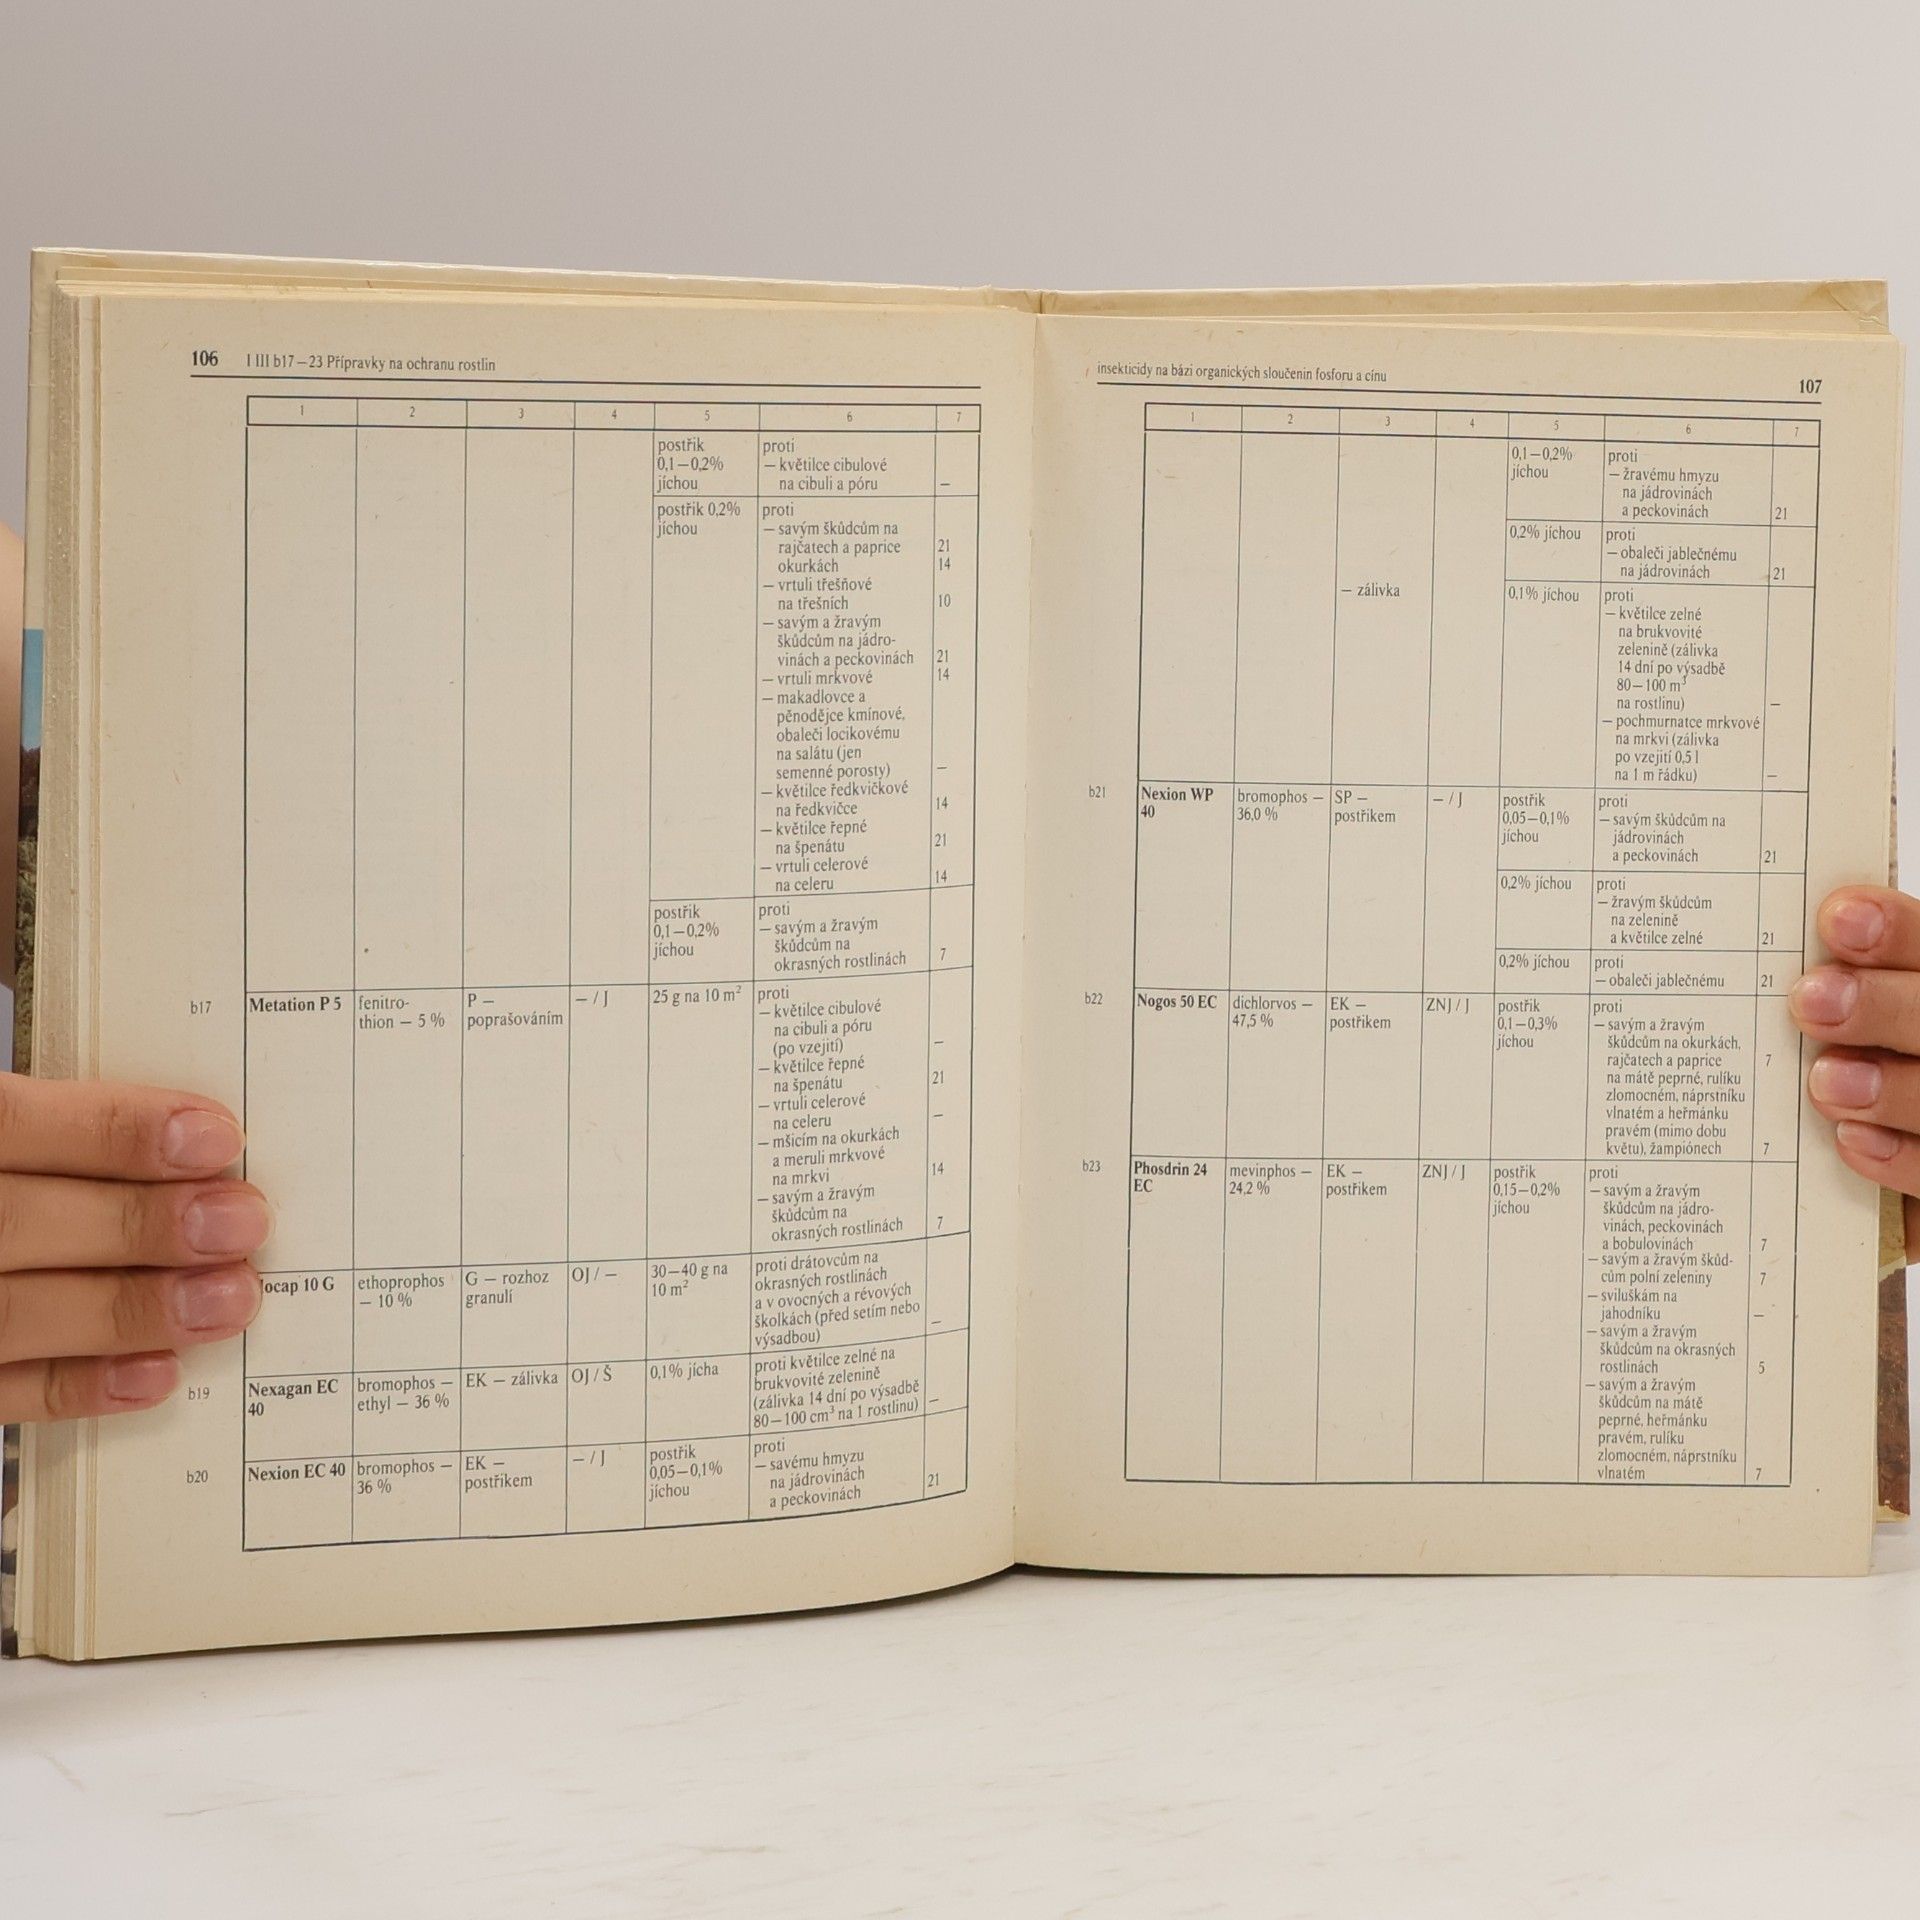 106 I III b17—23 Přípravky na ochranu rostlin
1 2 3 4 5 6 7
postřik
0,1—0,2%
jíchou
proti
— květilce cibulové
na cibuli a póru —
postřik 0,2%
jíchou
proti
— savým škůdcům na
rajčatech a paprice 21
okurkách 14
— vrtuli třešňové
na třešních 10
— savým a žravým
škůdcům na jádro-
vinách a peckovinách 21
— vrtuli mrkvové 14
— makadlovce a
pěnodějce kmínové,
obaleči locikovému
na salátu (jen
semenné porosty) —
— květilce ředkvičkové
na ředkvičce 14
— květilce řepné
na špenátu 21
— vrtuli celerové
na celeru 14
postřik
0,1—0,2%
jíchou
proti
— savým a žravým
škůdcům na
okrasných rostlinách 7
b17 Metation P 5
fenitro-
thion — 5 %
P —
poprašováním
— / J
25 g na 10 m²
proti
— květilce cibulové
na cibuli a póru
(po vzejití) —
— květilce řepné
na špenátu 21
— vrtuli celerové
na celeru —
— mšicím na okurkách
a meruli mrkvové
na mrkvi 14
— savým a žravým
škůdcům na
okrasných rostlinách 7
ocap 10 G
ethoprophos
— 10 %
G — rozhoz
granulí
OJ / —
30—40 g na
10 m²
proti drátovcům na
okrasných rostlinách
a v ovocných a révových
školkách (před setím nebo
výsadbou) —
b19 Nexagan EC
40
bromophos —
ethyl — 36 %
EK — zálivka
OJ / Š
0,1% jícha
proti květilce zelné na
brukvovité zelenině
(zálivka 14 dní po výsadbě
80—100 cm³ na 1 rostlinu) —
b20 Nexion EC 40
bromophos —
36 %
EK —
postřikem
— / J
postřik
0,05—0,1%
jíchou
proti
— savému hmyzu
na jádrovinách
a peckovinách 21
insekticidy na bázi organických sloučenin fosforu a cínu 107
1 2 3 4 5 6 7
0,1—0,2%
jíchou
proti
— žravému hmyzu
na jádrovinách
a peckovinách 21
0,2% jíchou
proti
— obaleči jablečnému
na jádrovinách 21
— zálivka
0,1% jíchou
proti
— květilce zelné
na brukvovité
zelenině (zálivka
14 dní po výsadbě
80—100 m³
na rostlinu) —
— pochmurnatce mrkvové
na mrkvi (zálivka
po vzejití 0,5 l
na 1 m řádku) —
b21 Nexion WP
40
bromophos —
36,0 %
SP —
postřikem
— / J
postřik
0,05—0,1%
jíchou
proti
— savým škůdcům na
jádrovinách
a peckovinách 21
0,2% jíchou
proti
— žravým škůdcům
na zelenině
a květilce zelné 21
0,2% jíchou
proti
— obaleči jablečnému 21
b22 Nogos 50 EC
dichlorvos —
47,5 %
EK —
postřikem
ZNJ / J
postřik
0,1—0,3%
jíchou
proti
— savým a žravým
škůdcům na okurkách,
rajčatech a paprice 7
na mátě peprné, rulíku
zlomocném, náprstníku
vlnatém a heřmánku
pravém (mimo dobu
květu), žampiónech 7
b23 Phosdrin 24
EC
mevinphos —
24,2 %
EK —
postřikem
ZNJ / J
postřik
0,15—0,2%
jíchou
proti
— savým a žravým
škůdcům na jádro-
vinách, peckovinách
a bobulovinách 7
— savým a žravým škůd-
cům polní zeleniny 7
— sviluškám na
jahodníku —
— savým a žravým
škůdcům na okrasných
rostlinách 5
— savým a žravým
škůdcům na mátě
peprné, heřmánku
pravém, rulíku
zlomocném, náprstníku
vlnatém 7